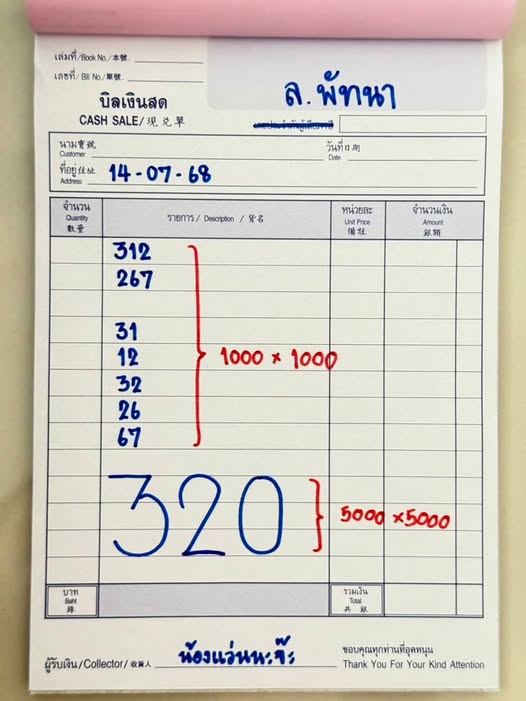 เล่มที่/Book No./本號.
เลขที่/Bill No./單號.
บิลเงินสด
CASH SALE/現兌單
ล.พัทนา
นาม寶號
Customer
วันที่日期
Date
ที่อยู่住址
Address
14-07-68
จำนวน
Quantity
數量
รายการ / Description / 貨名
หน่วยละ
Unit Price
備註
จำนวนเงิน
Amount
銀額
312
267
31
12
32
26
67
1000 × 1000
320
5000 × 5000
บาท
Baht
銖
รวมเงิน
Total
共銀
ผู้รับเงิน/Collector/收貨人
น้องแว่นนะจ๊ะ
ขอบคุณทุกท่านที่อุดหนุน
Thank You For Your Kind Attention